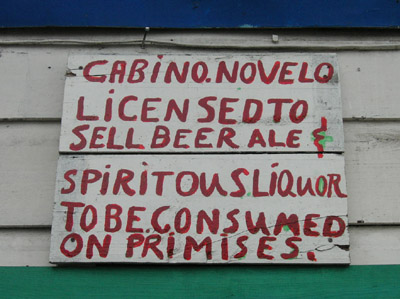 CABINO.NOVELO
LICENSEDTO
SELL BEER ALE &
SPIRITOUS LIQUOR
TO BE.CONSUMED
ON PRIMISES.